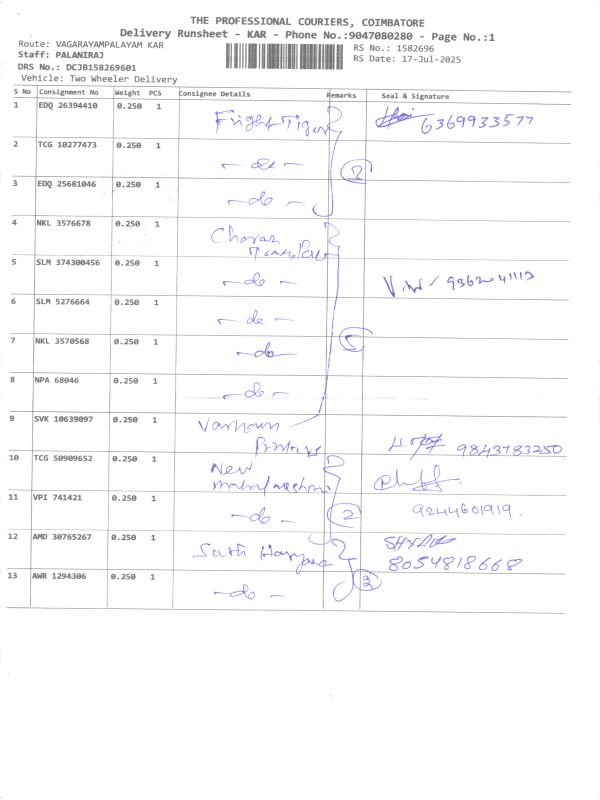 THE PROFESSIONAL COURIERS, COIMBATORE
Delivery Runsheet - KAR - Phone No.:9047080280 - Page No.:1
Route: VAGARAYAMPALAYAM KAR
RS No.: 1582696
Staff: PALANIRAJ
RS Date: 17-Jul-2025
DRS No.: DCJB158269601
Vehicle: Two Wheeler Delivery
S No Consignment No Weight PCS Consignee Details Remarks Seal & Signature
1 EDQ 26394410 0.250 1 Fright Tiger 6369933577
2 TCG 10277473 0.250 1 - do -
3 EDQ 25681046 0.250 1 - do -
4 NKL 3576678 0.250 1
5 SLM 374300456 0.250 1 - do -
6 SLM 5276664 0.250 1 - do -
7 NKL 3570568 0.250 1 - do - 5
8 NPA 68046 0.250 1 - do -
9 SVK 10639097 0.250 1 9843783250
10 TCG 50909652 0.250 1 New
11 VPI 741421 0.250 1 - do - 2 9244601919.
12 AMD 30765267 0.250 1 Haryana 8054818668
13 AWR 1294306 0.250 1 - do - 2